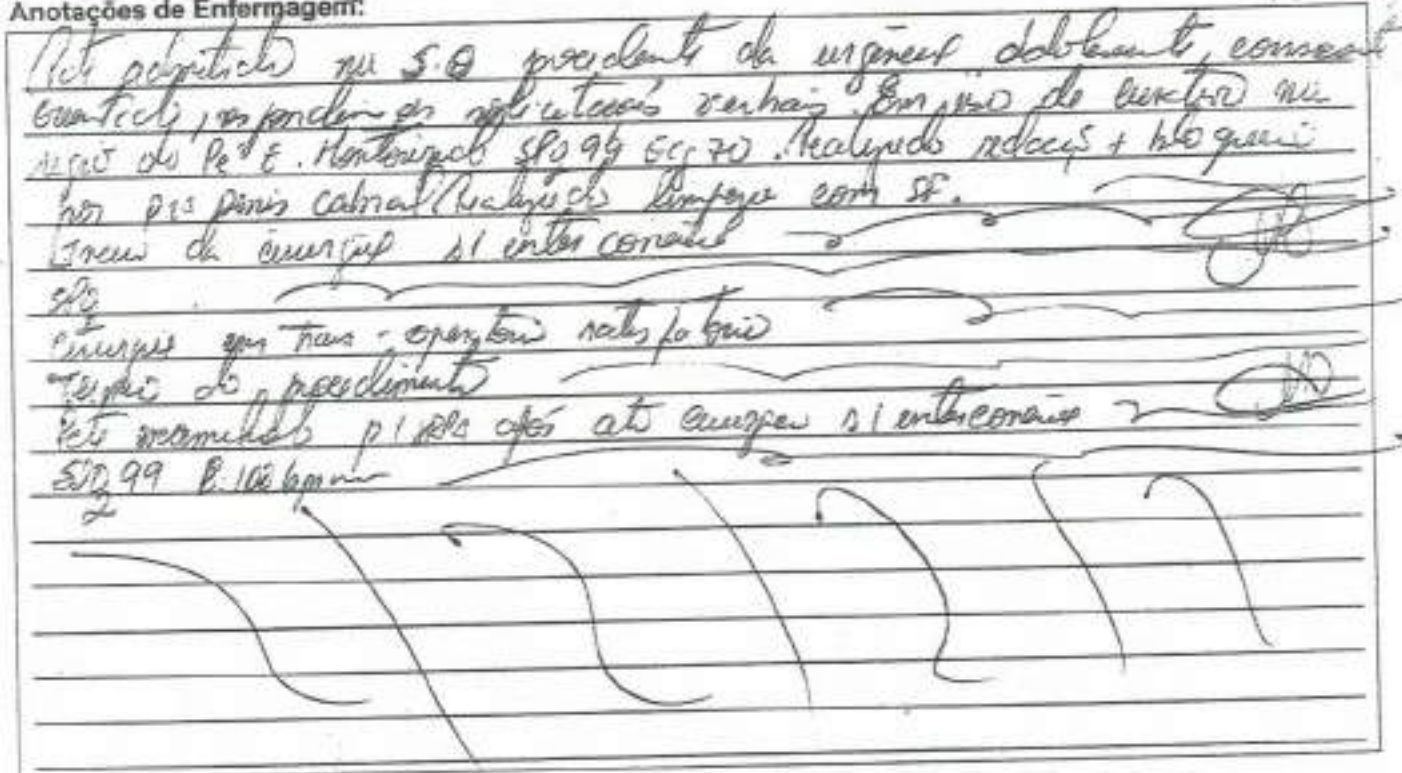 Anotações de Enfermagem:
Pcte admitido na S.O procedente da urgência deambulante, consciente
orientado, as solicitações verbais. Em uso de curativo na
região do Pé E. Monitorizado SPO2 99 ECG 70. Realizado sedação + bloqueio
por Realizado limpeza com SF.
Inicio da cirurgia s/ intercorrencia
SPO2
cirurgia em trans-operatorio satisfatorio
Termino do procedimento
Pcte encaminhado p/ após ato cirurgico s/ intercorrencia
SPO2 99 P: 102 bpm